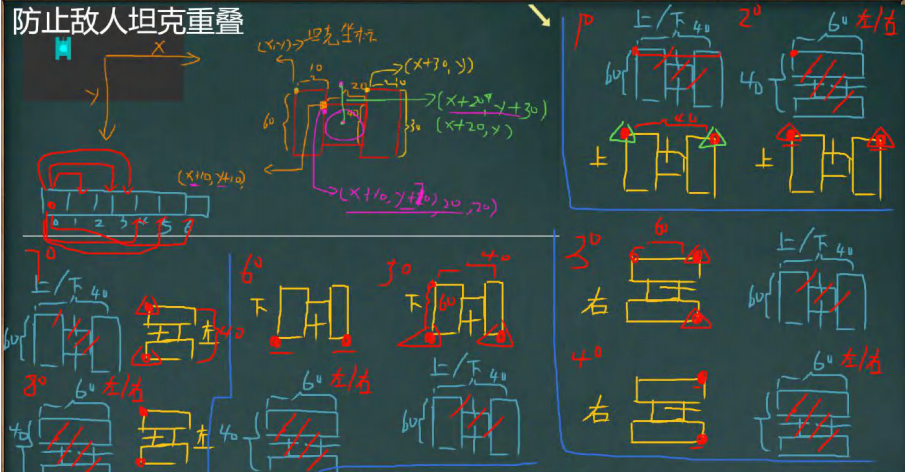 防止敌人坦克重叠
X
Y
(x,y)→坦克坐标
10
20
10
(x+30,y)
60
40
30
(x+20,y+30)
(x+20,y)
(x+10,y+10)
0 1 2 3 4 5 6
1°
上/下 40
60
上
40
2°
60 左/右
40
上
3°
60
右
上/下 40
60
4°
右
60 左/右
40
5°
下
40
60
上/下 40
60
6°
下
60 左/右
40
7°
上/下 40
60
左
40
8°
60 左/右
40
左